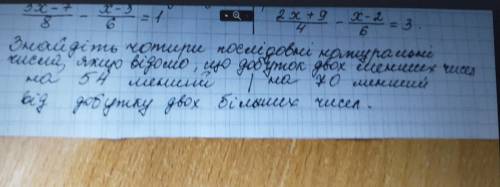 3x-7/8 - x-3/6 = 1    2x+9/4 - x-2/6 = 3.
Знайдіть чотири послідовні натуральні
числа, якщо відомо, що добуток двох менших чисел
на 54 менший | на 70 менший
від добутку двох більших чисел.